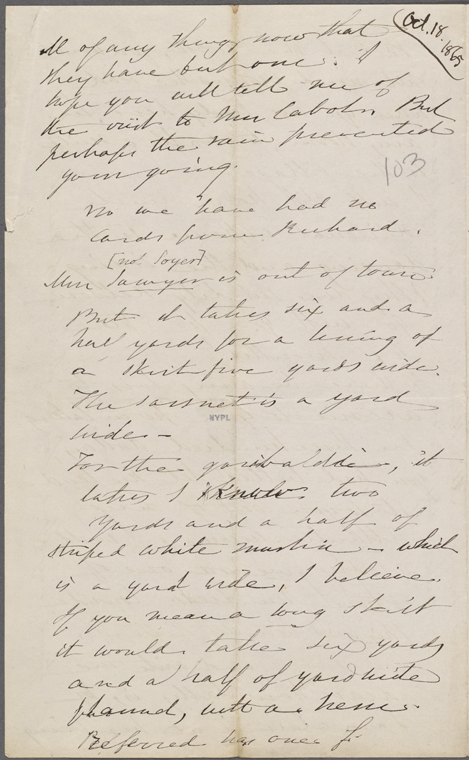 Oct. 18. 1865
all of any thing, now that
they have but one. I
hope you will tell me of
the visit to Mrs Cabots. But
perhaps the rain prevented
your going.
103
No we have had no
cards from Richard.
[not Soyer]
Mrs Sawyer is out of town
But it takes six and a
half yards for a lining of
a skirt five yards wide.
The sarsnet is a yard
wide—
NYPL
For the garibaldi, it
takes I know two
yards and a half of
striped white muslin — which
is a yard wide, I believe.
If you mean a long skirt
it would take six yards
and a half of yard wide
flannel, with a hem.
has one f